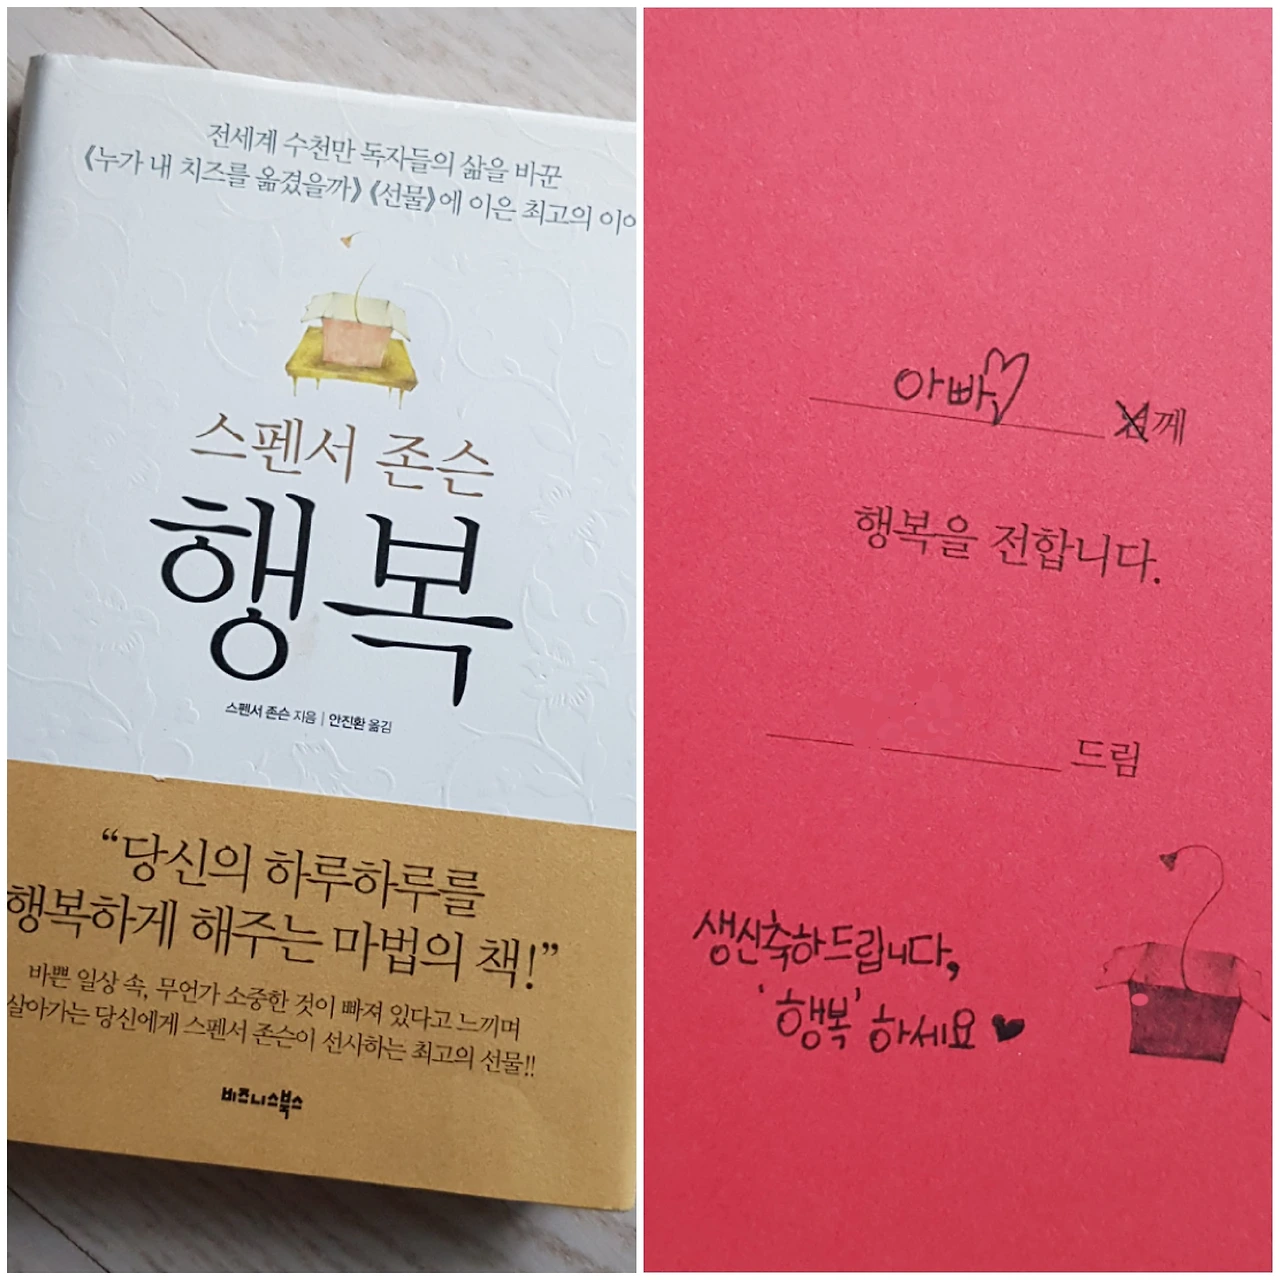 전세계 수천만 독자들의 삶을 바꾼
《누가 내 치즈를 옮겼을까》 《선물》에 이은 최고의
스펜서 존슨
행복
스펜서 존슨 지음 | 안진환 옮김
“당신의 하루하루를
행복하게 해주는 마법의 책!”
바쁜 일상 속, 무언가 소중한 것이 빠져 있다고 느끼며
살아가는 당신에게 스펜서 존슨이 선사하는 최고의 선물!!
비즈니스북스
아빠♡ 께
행복을 전합니다.
드림
생신축하드립니다,
'행복' 하세요 ♥